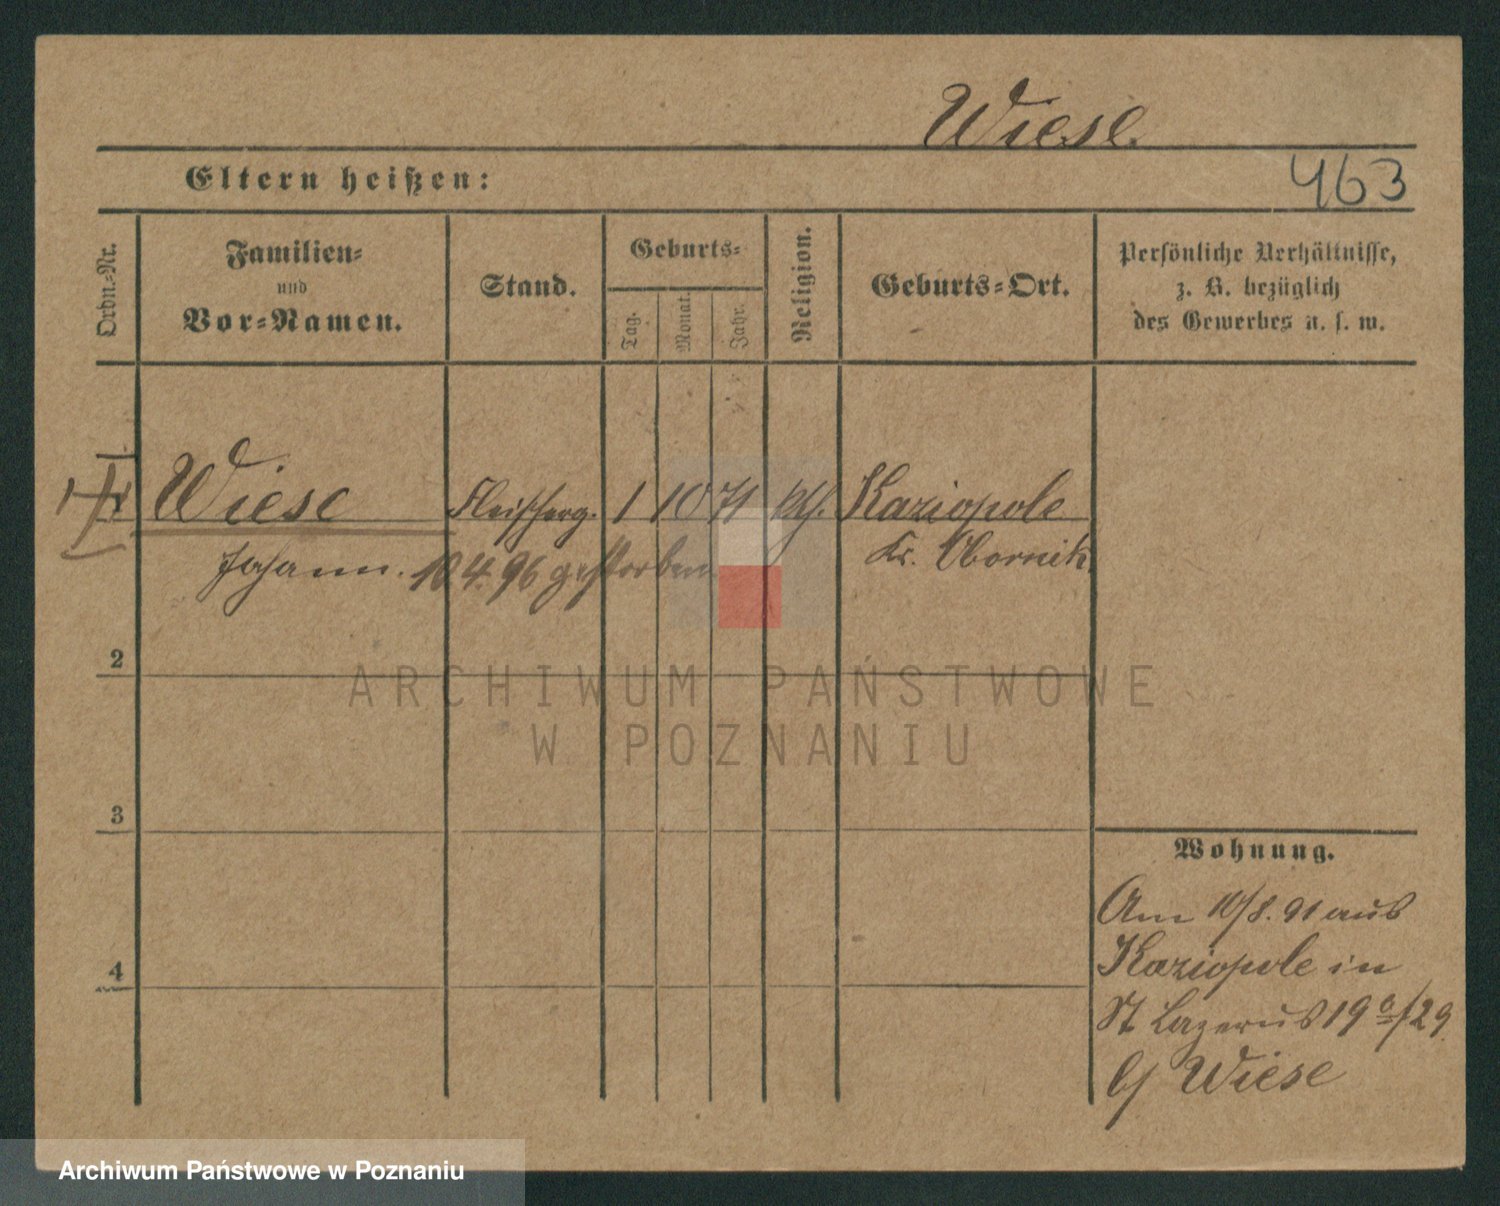 Wiese
Eltern heißen:
463
Ordn.-Nr.
Familien-
und
Vor-Namen.
Stand.
Geburts-
Tag.
Monat.
Jahr.
Religion.
Geburts-Ort.
Persönliche Verhältnisse,
z. B. bezüglich
des Gewerbes u. s. w.
Wiese Fleischerg. 1 10 71 kth. Kaziopole
Johann. 10.4.96 gestorben Kr. Obornik
2
3
4
Wohnung.
Am 10/8. 91 aus
Kaziopole in
St Lazarus 19a/29
b/ Wiese
ARCHIWUM PAŃSTWOWE
W POZNANIU
Archiwum Państwowe w Poznaniu